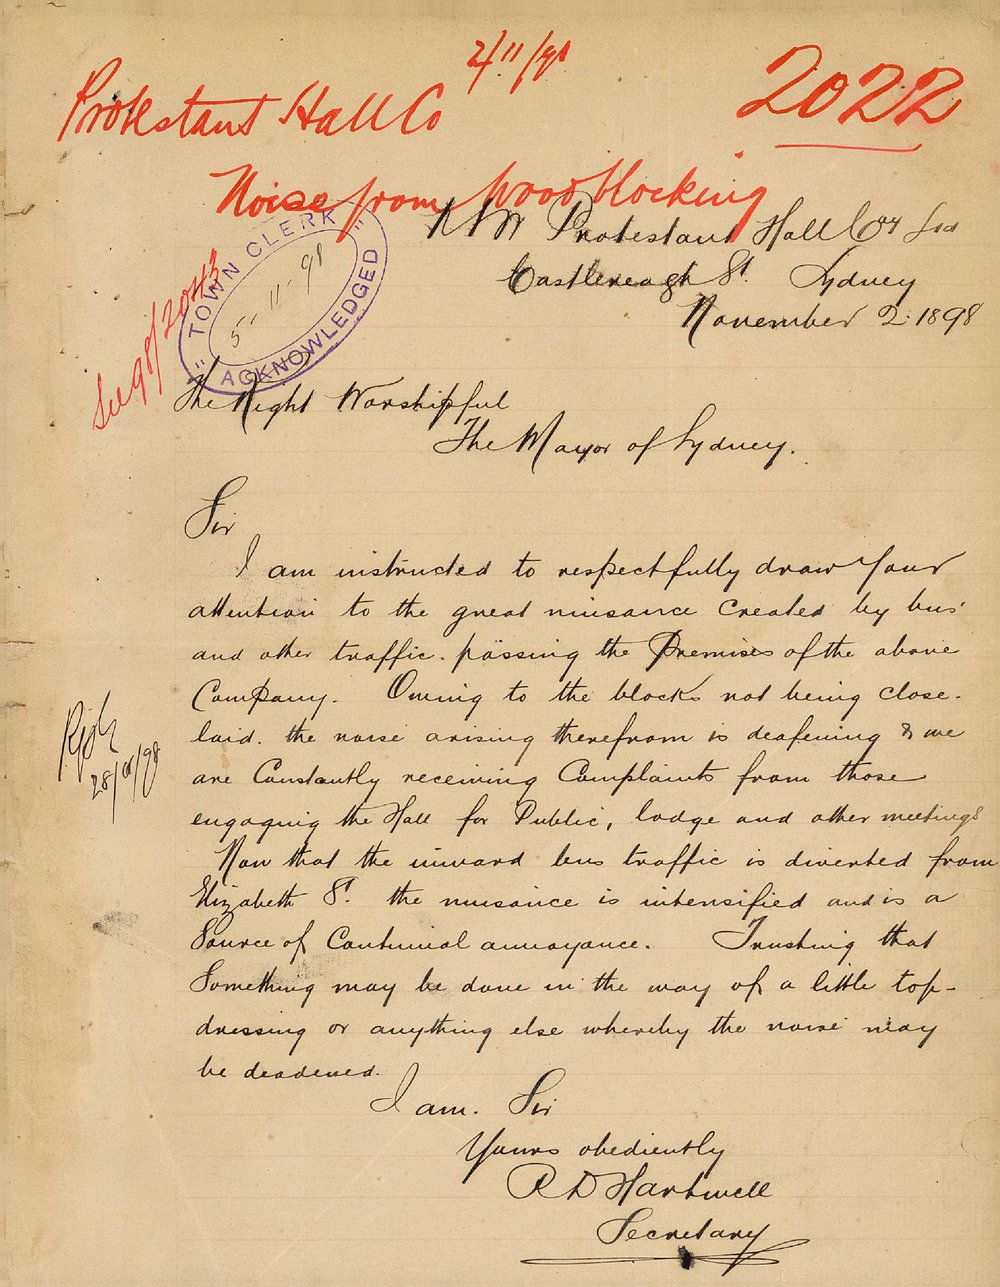 2/11/98
Protestant Hall Co
2022
Noise from Woodblocking
NSW Protestant Hall Coy Ltd
Castlereagh St. Sydney
November 2. 1898
"TOWN CLERK"
5-11-98
ACKNOWLEDGED
See 98/2043
The Right Worshipful
The Mayor of Sydney.
Sir
I am instructed to respectfully draw Your
attention to the great nuisance created by bus
and other traffic. passing the Premises of the above
Company. Owing to the blocks not being close-
laid. the noise arising therefrom is deafening & we
are Constantly receiving Complaints from those
engaging the Hall for Public, lodge and other meetings
Now that the inward bus traffic is diverted from
Elizabeth St. the nuisance is intensified and is a
Source of Continual annoyance. Trusting that
Something may be done in the way of a little top-
dressing or anything else whereby the noise may
be deadened.
I am. Sir
Yours obediently
R D Hartwell
Secretary